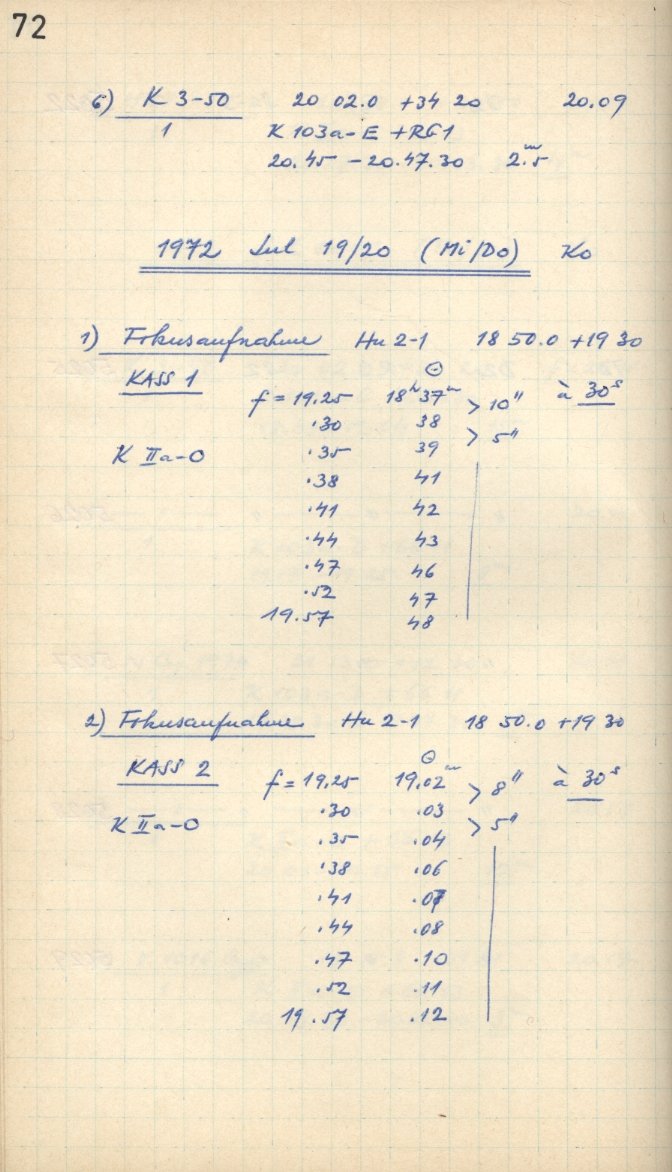 72
6) K 3-50 20 02.0 +34 20 20.09
1 K 103a-E + RG1
20.45 - 20.47.30 2.ᵐ5
1972 Jul 19/20 (Mi/Do) Ko
1) Fokusaufnahme Hu 2-1 18 50.0 +19 30
KASS 1 f = 19.25 18ʰ37ᵐ > 10" à 30ˢ
.30 38 > 5"
K IIa-O .35 39
.38 41
.41 42
.44 43
.47 46
.52 47
19.57 48
2) Fokusaufnahme Hu 2-1 18 50.0 +19 30
KASS 2 f = 19.25 19.02ᵐ > 8" à 30ˢ
.30 .03 > 5"
K IIa-O .35 .04
.38 .06
.41 .07
.44 .08
.47 .10
.52 .11
19.57 .12